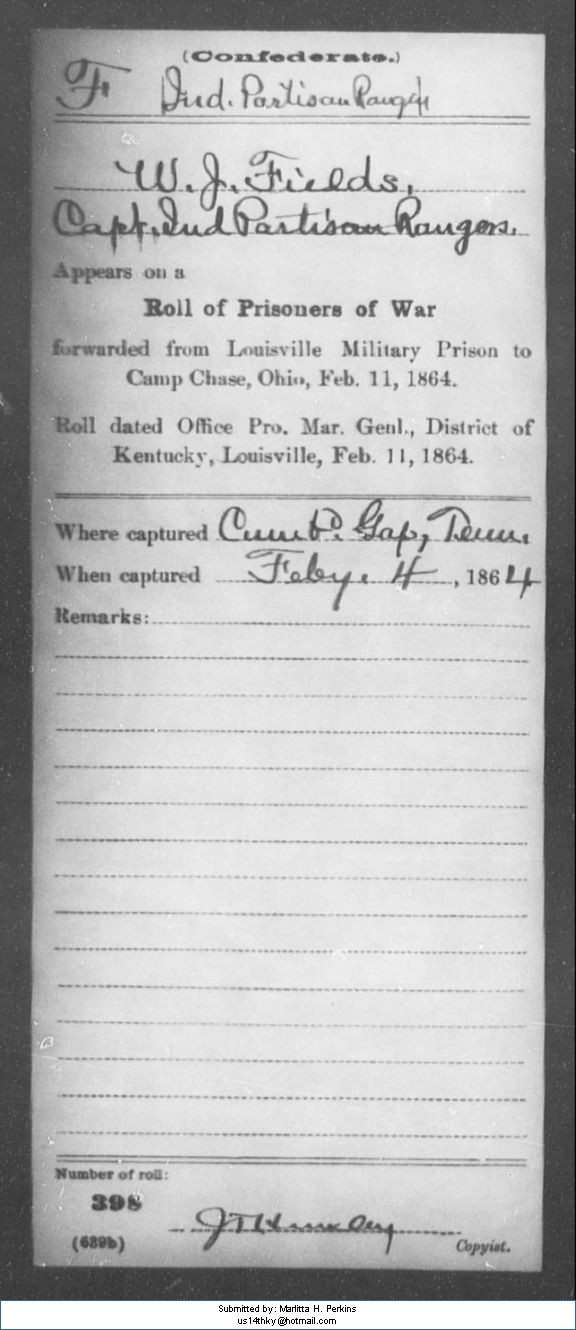 (Confederate.)
F Ind. Partisan Rangers
W. J. Fields,
Capt. Ind Partisan Rangers.
Appears on a
Roll of Prisoners of War
forwarded from Louisville Military Prison to
Camp Chase, Ohio, Feb. 11, 1864.
Roll dated Office Pro. Mar. Genl., District of
Kentucky, Louisville, Feb. 11, 1864.
Where captured Cumbd. Gap, Tenn.
When captured Feby. 4, 1864
Remarks:
Number of roll:
398
(639b)
Copyist.
Submitted by: Marlitta H. Perkins
us14thky@hotmail.com